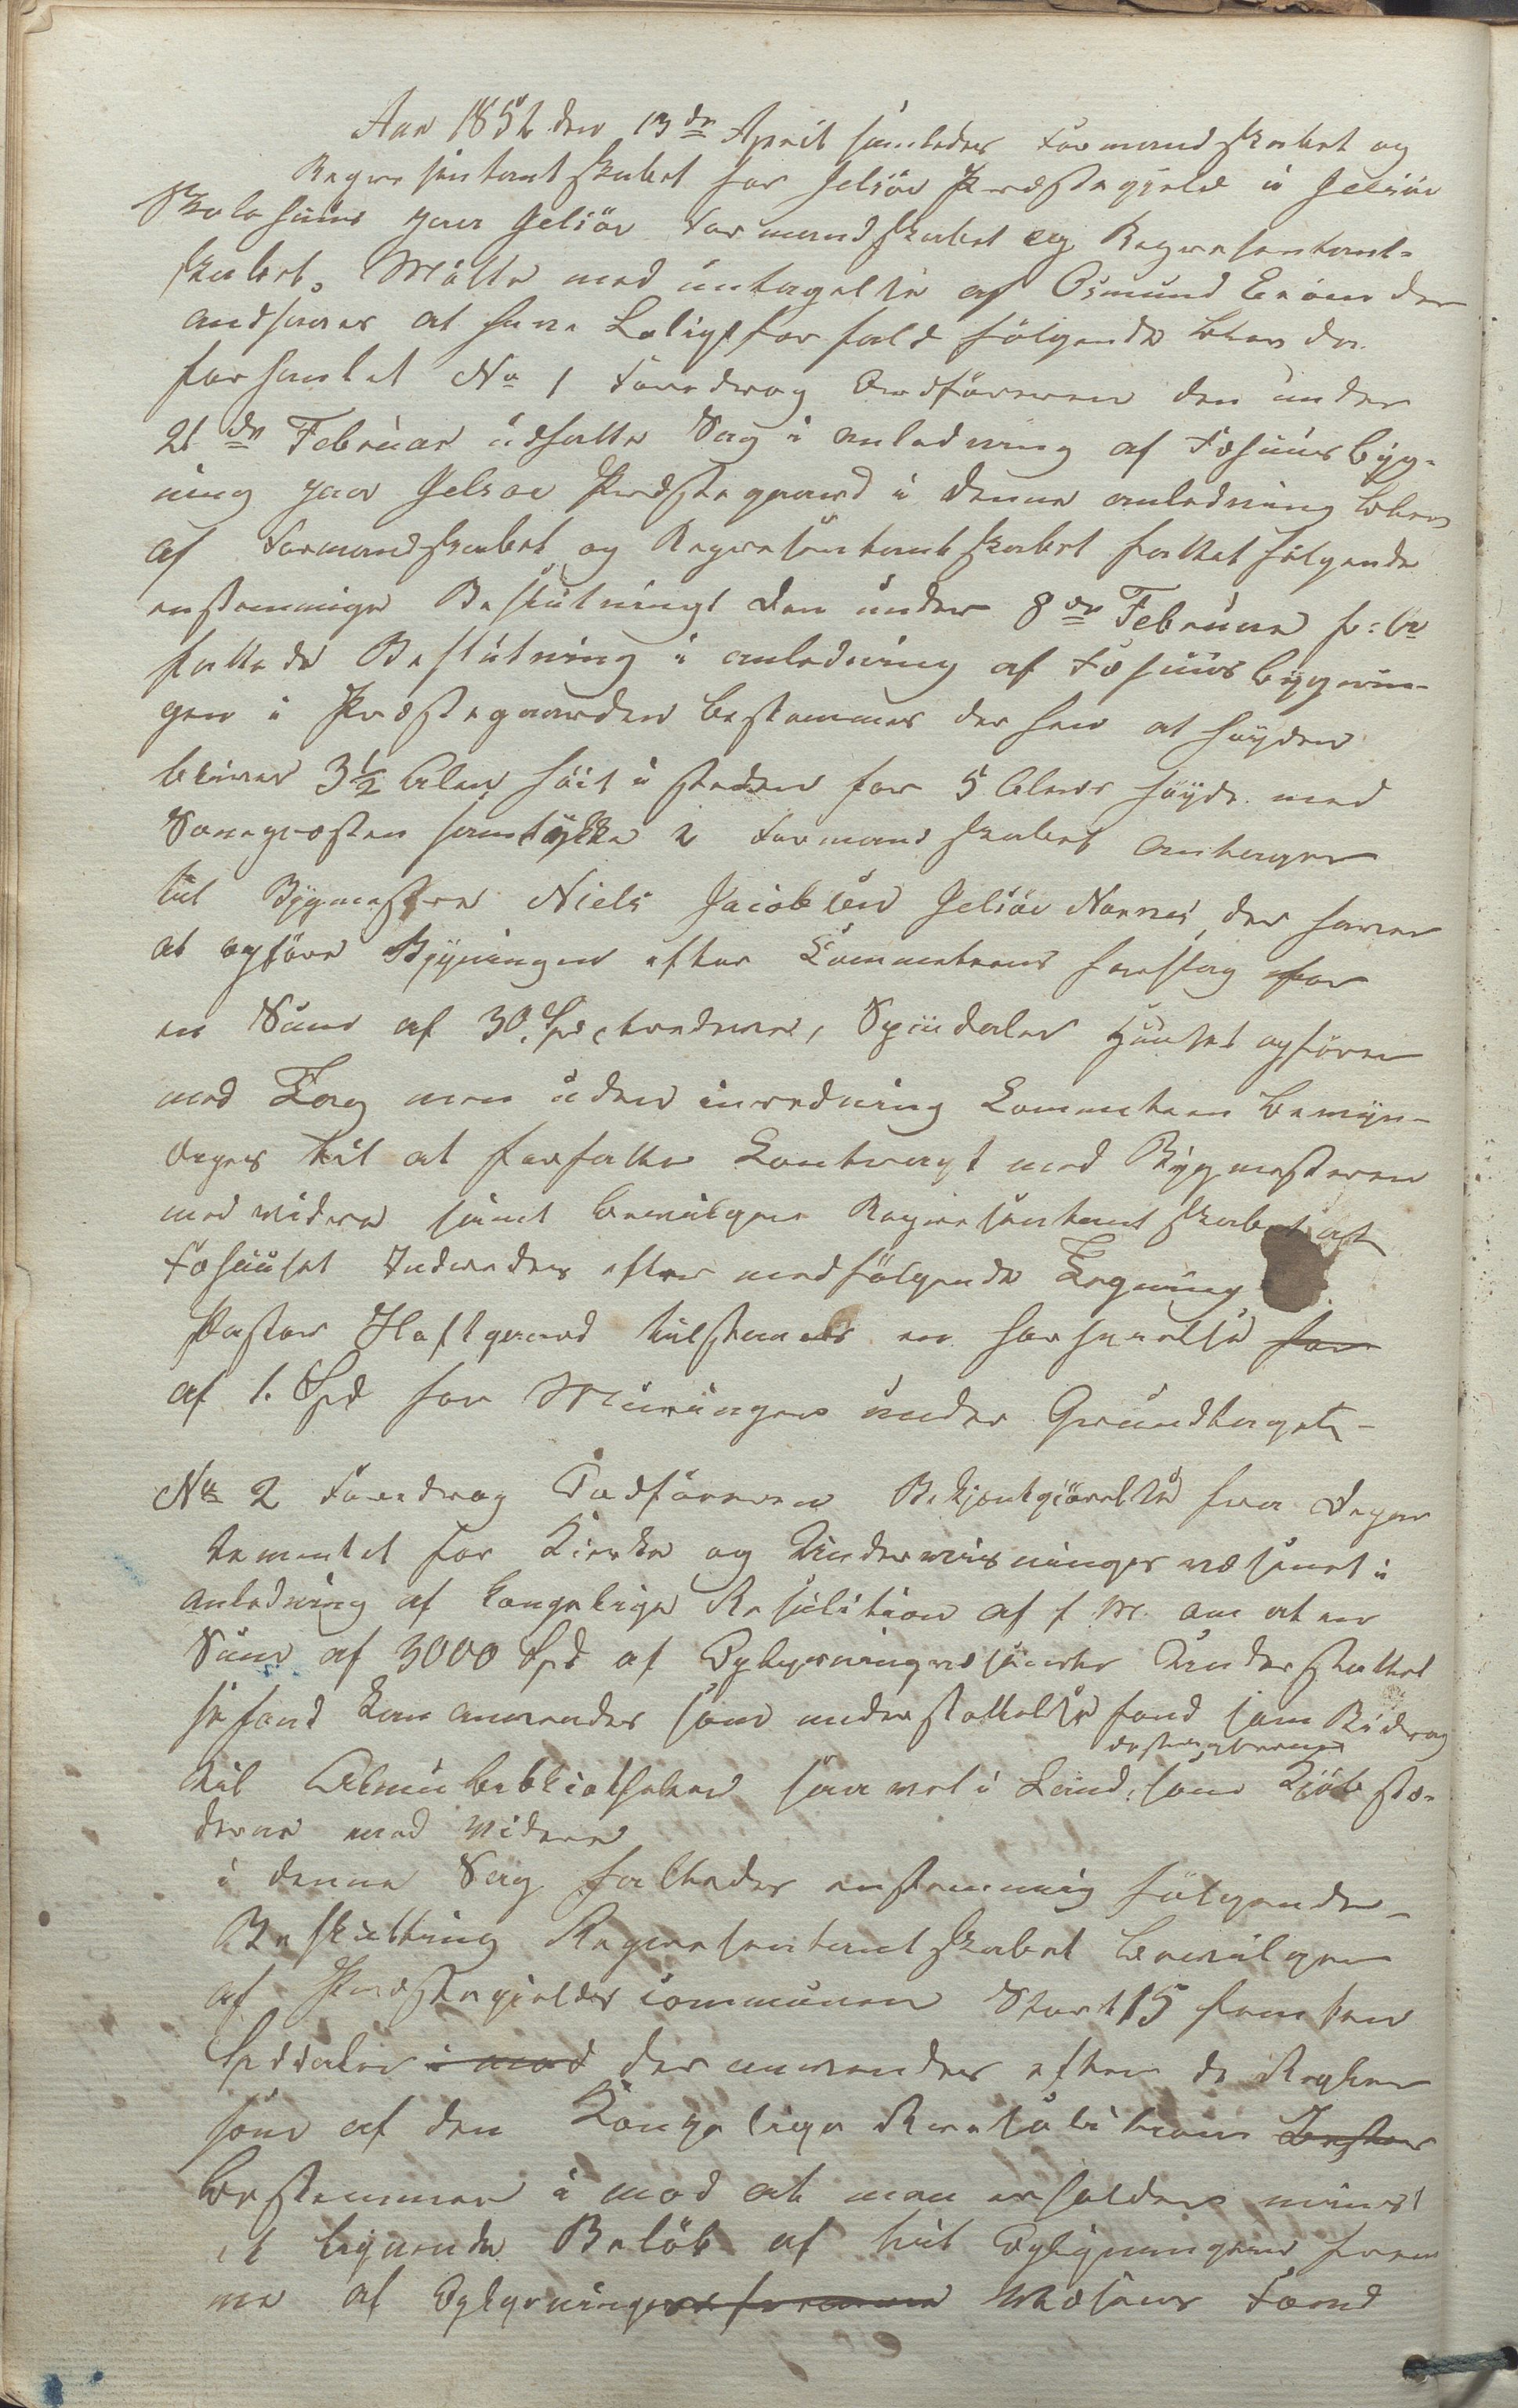 Aar 1852 den 13de April samledes Formandskabet og
Repræsentantskabet for Jelsöe Præstegjeld i Jelsöe
Skolehuus paa Jelsöe Formandskabet og Represantant-
skabet. Mötte med untagelse af Osmund Eröen der
andsaaes at have Lovligt forfald fölgende blev da
forhandlet No 1 Foredrog Ordföreren den under
21de Februar udsatte Sag i anledning af Fæhuusbyg-
ning paa Jelsøe Prdstegaard i denne anledning blev
af Formandskabet og Represæntantskabet fattet fölgende
enstemmige Beslutningt Den under 8de Februar f: A
fattede Beslutning i anledning af Fæhuusbygnin-
gen i Præstegaarden bestemmes derhen at höyden
bliver 3½ Alen höit i steden for 5 Alens höyde med
Sonepræsten samtykke 2 Formandskabet antager
til Bygmester Niels Jacobsen Jelsöe Næsset, der haver
at opföre Bygningen efter Committeens forslag for
en Sum af 30 Spd, tredeve, Spesidaler Huuset opföres
med Tag men uden inredning Committeen bemyn-
diges til at forfatte Contragt med Bygmesteren
med videre samt bevilgede Represæntantskabet at
Fæhuuset Indredes efter medfölgende Tegning
Pastor Hoftgaard tilstaaes en forhøielse for
af 1. Spd for Muringen under Grundtaget-
No 2 Foredrog Ordföreren Bekjentgjörelse fra Depar
tementet for Kierke og Underviisningsvæsenet i
anledning af kongelige Resulition af f M. om at en
Sum af 3000 Spd af Oplysningsvæsenets Understøttel
sefond kan anvendes som understøttelse fond som Bidrag
destrigterne
til Almubibliotheker saavel i Land, som Kjöbstæ-
derne med Videre
i denne Sag fattedes enstemmig fölgende-
Beslutting Represæntantskabet bevilger
af Præstegieldes communen Stort 15 femten
Spddaler i mod der anvendes efter de Regler
som af den Kongelige Resulition Besten
bestemmer i mod at man erholder minst
et lignende Belöb af til Oplysningens frem
me af Oplysningens fremme Væsens Fond